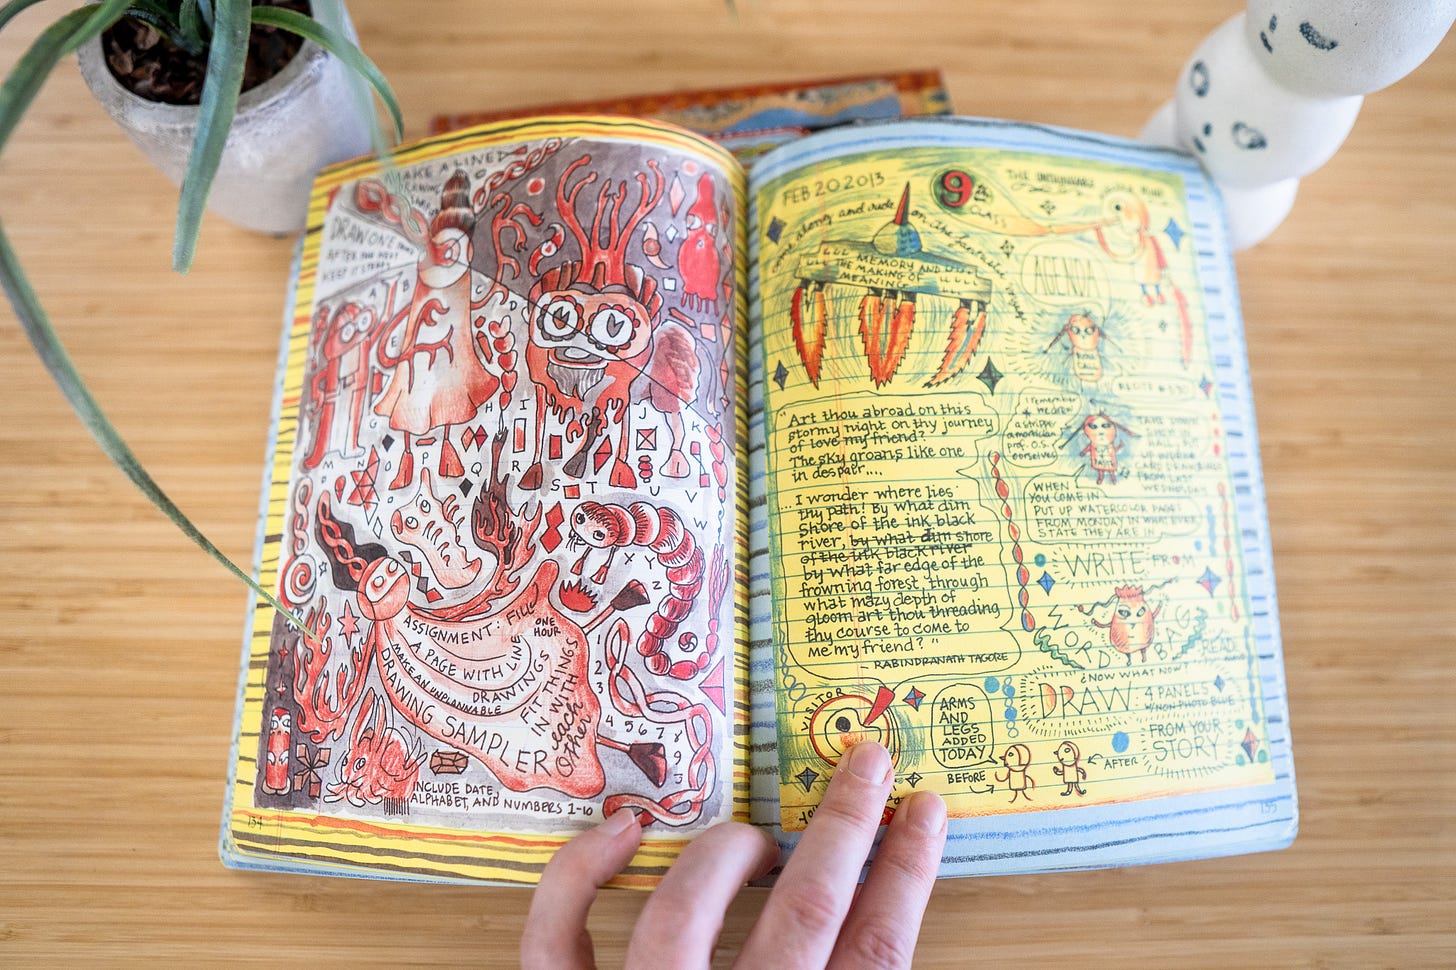 MAKE A LINED
DRAW ONE
AFTER THE NEXT
KEEP IT STEADY
A B C D
E
G H I J K
M N O P Q R S T U V
W
X Y
Z
ASSIGNMENT: FILL
A PAGE WITH LINE
DRAWINGS
ONE
HOUR
MAKE AN UNPLANNABLE
DRAWING SAMPLER
FIT THINGS
IN WITH
each
other
1
2
3
4 5 6 7 8
9
INCLUDE DATE,
ALPHABET, AND NUMBERS 1-10
154
FEB 20 2013
9th
CLASS
THE UNTHINKABLE
MEMORY AND
THE MAKING OF
MEANING
AGENDA
"Art thou abroad on this
stormy night on thy journey
of love my friend?
The sky groans like one
in despair....
... I wonder where lies
thy path! By what dim
shore of the ink black
river, by what dim shore
of the ink black river
by what far edge of the
frowning forest, through
what mazy depth of
gloom art thou threading
thy course to come to
me my friend?"
- RABINDRANATH TAGORE
I remember
a stripper
a mortician
prof. O.S.
ourselves
TAKE DOWN
HALL, PUT
UP WORM
CARD DRAWINGS
FROM LAST
WEDNESDAY
WHEN
YOU COME IN
PUT UP WATERCOLOR PAGES
FROM MONDAY IN WHATEVER
STATE THEY ARE IN
WRITE FROM
WORD BAG
READ
¿NOW WHAT NOW?
DRAW 4 PANELS
W/NON PHOTO BLUE
FROM YOUR
STORY
VISITOR
ARMS
AND
LEGS
ADDED
TODAY
BEFORE
AFTER
155